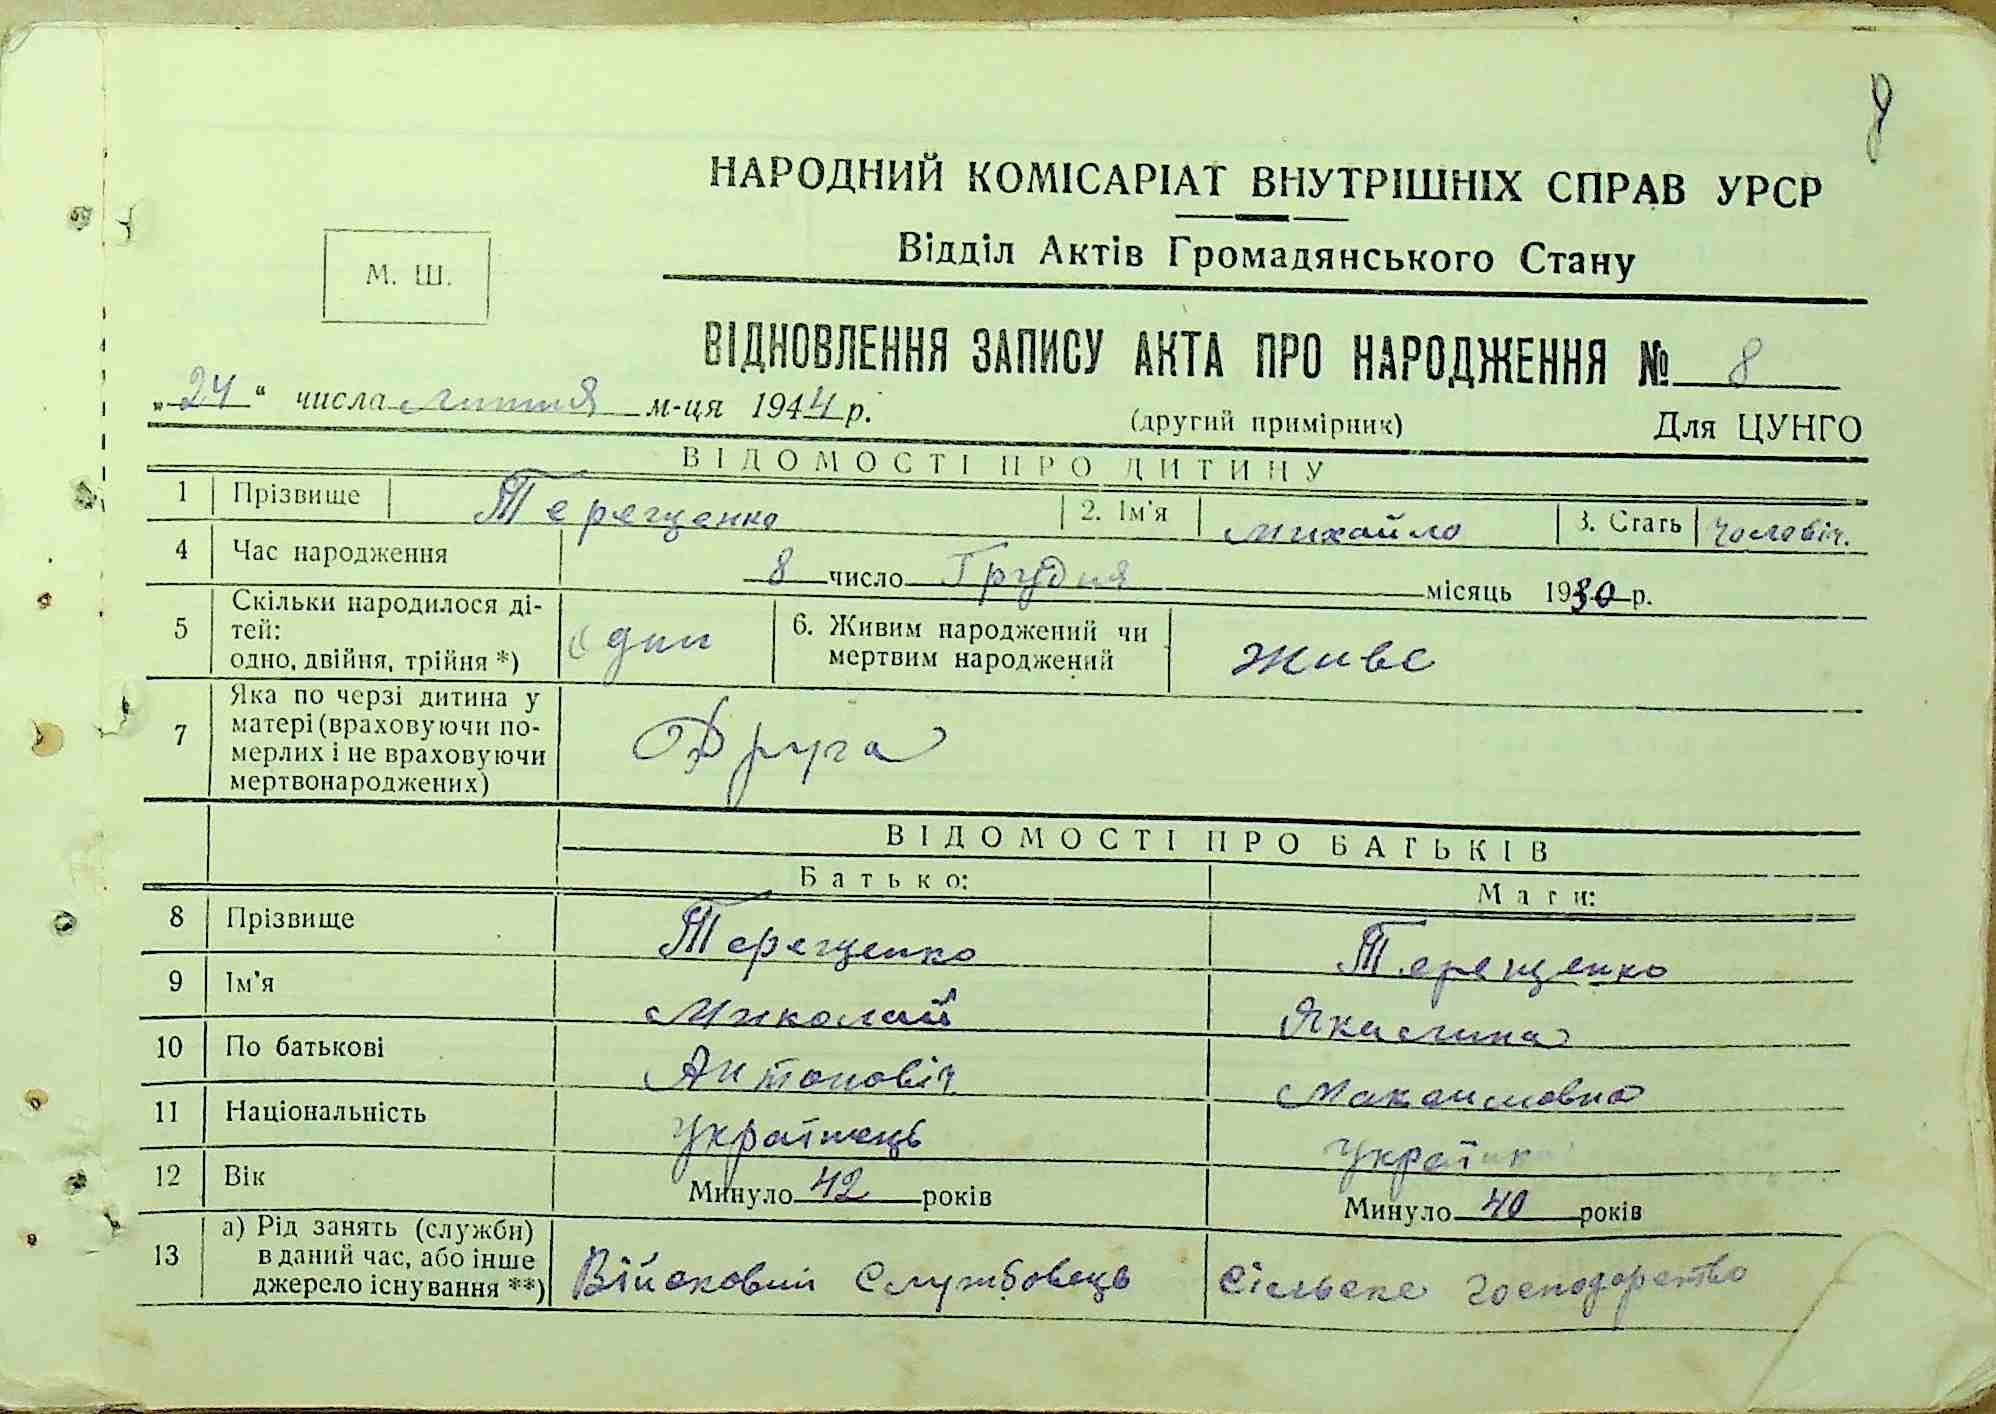 8
НАРОДНИЙ КОМІСАРІАТ ВНУТРІШНІХ СПРАВ УРСР
Відділ Актів Громадянського Стану
М. Ш.
ВІДНОВЛЕННЯ ЗАПИСУ АКТА ПРО НАРОДЖЕННЯ № 8
„24“ числа липня м-ця 1944 р. (другий примірник) Для ЦУНГО
ВІДОМОСТІ ПРО ДИТИНУ
1 Прізвище Терещенко 2. Ім'я Михайло 3. Стать Чоловіч.
4 Час народження 8 число Грудня місяць 1930 р.
5 Скільки народилося ді-
тей:
одно, двійня, трійня *) один 6. Живим народжений чи
мертвим народжений живе
7 Яка по черзі дитина у
матері (враховуючи по-
мерлих і не враховуючи
мертвонароджених) Друга
ВІДОМОСТІ ПРО БАТЬКІВ
Батько: Мати:
8 Прізвище Терещенко Терещенко
9 Ім'я Миколай Якилина
10 По батькові Антоновіч Максимовна
11 Національність Українець Українк
12 Вік Минуло 42 років Минуло 40 років
13 а) Рід занять (служби)
в даний час, або інше
джерело існування **) Війсковий Службовець Сільське господарство